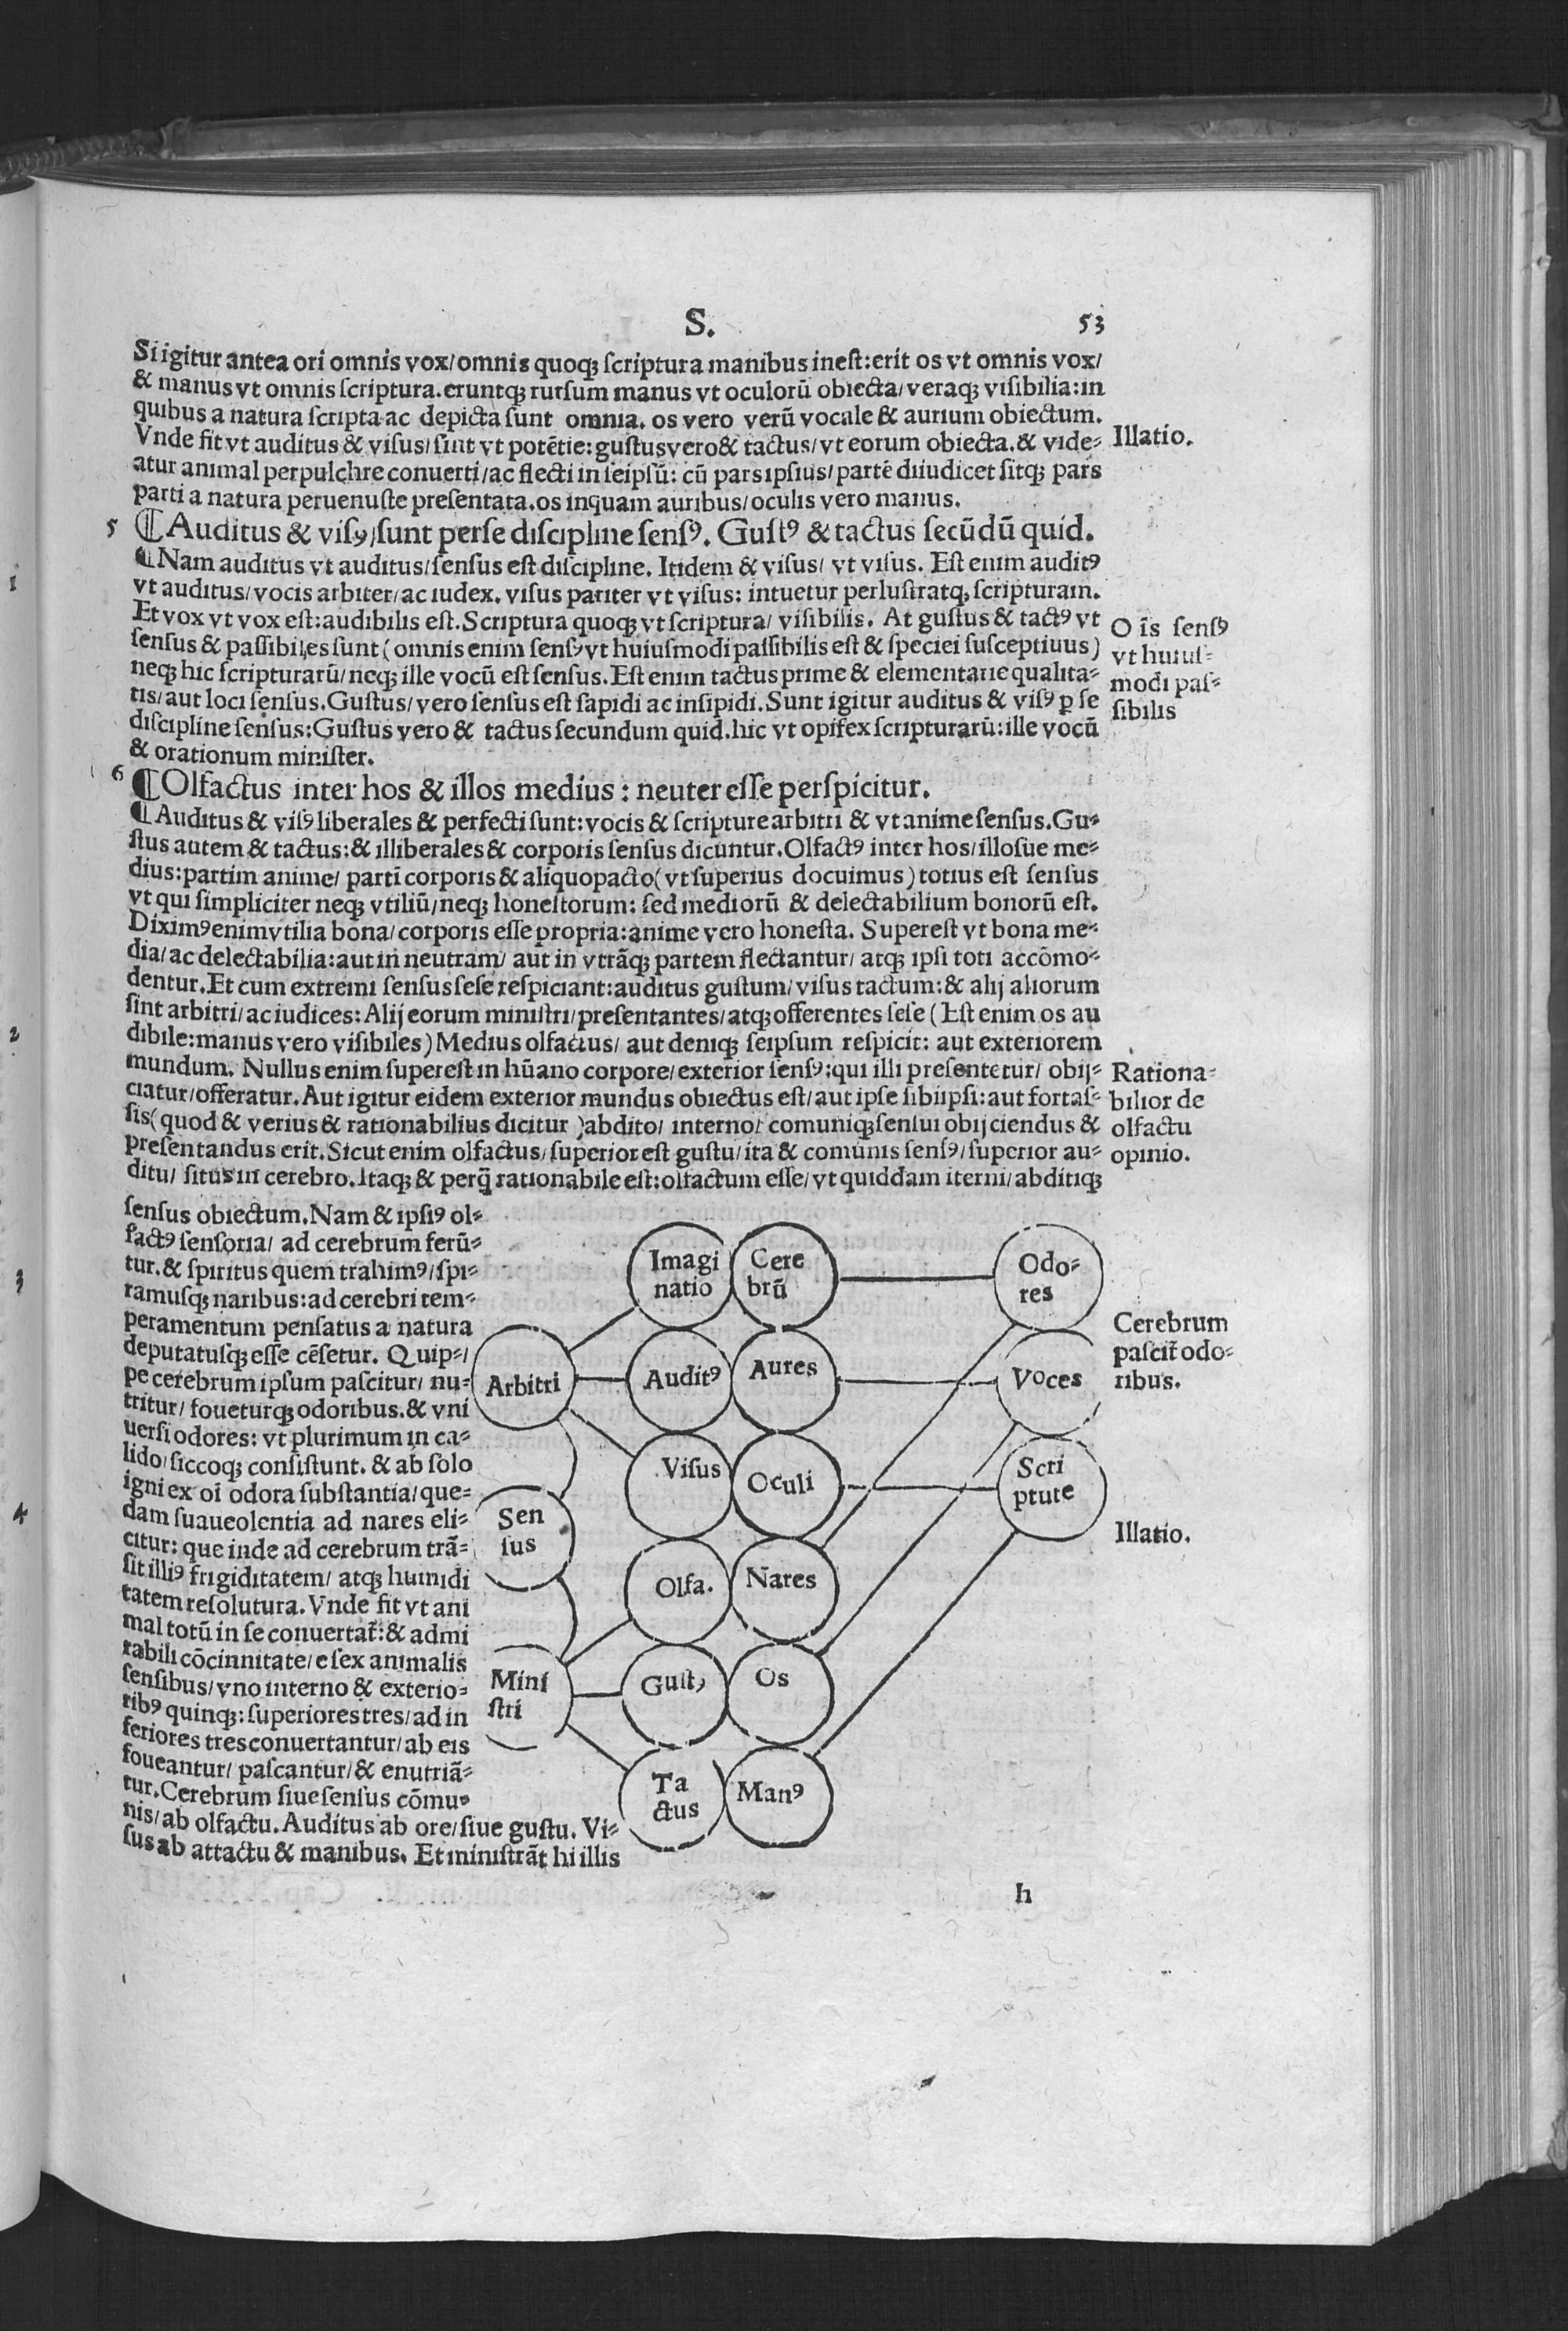 S.
53
Si igitur antea ori omnis vox/omnis quoqꝫ scriptura manibus inest:erit os vt omnis vox/
& manus vt omnis scriptura.eruntqꝫ rursum manus vt oculorū obiecta/veraqꝫ visibilia:in
quibus a natura scripta ac depicta sunt omnia. os vero verū vocale & aurium obiectum.
Vnde fit vt auditus & visus/sint vt potētie:gustus vero & tactus/vt eorum obiecta.& vide⸗
Illatio.
atur animal perpulchre conuerti/ac flecti in seipsū: cū pars ipsius/partē diiudicet sitqꝫ pars
parti a natura peruenuste presentata.os inquam auribus/oculis vero manus.
5 ¶Auditus & visꝰ/sunt perse discipline sensꝰ. Gustꝰ & tactus secūdū quid.
¶Nam auditus vt auditus/sensus est discipline. Itidem & visus/ vt visus. Est enim auditꝰ
vt auditus/vocis arbiter/ac iudex. visus pariter vt visus: intuetur perlustratqꝫ scripturam.
Et vox vt vox est:audibilis est.Scriptura quoqꝫ vt scriptura/ visibilis. At gustus & tactꝰ vt
sensus & passibiles sunt (omnis enim sensꝰ vt huiusmodi passibilis est & speciei susceptiuus)
neqꝫ hic scripturarū/neqꝫ ille vocū est sensus.Est enim tactus prime & elementarie qualita⸗
tis/aut loci sensus.Gustus/vero sensus est sapidi ac insipidi.Sunt igitur auditus & visꝰ ꝑ se
discipline sensus:Gustus vero & tactus secundum quid.hic vt opifex scripturarū:ille vocū
& orationum minister.
O īs sensꝰ
vt huius⸗
modi pas⸗
sibilis
6 ¶Olfactus inter hos & illos medius : neuter esse perspicitur.
¶Auditus & visꝰ liberales & perfecti sunt:vocis & scripture arbitri & vt anime sensus.Gu⸗
stus autem & tactus:& illiberales & corporis sensus dicuntur.Olfactꝰ inter hos/illosue me⸗
dius:partim anime/ partī corporis & aliquopacto(vt superius docuimus) totius est sensus
vt qui simpliciter neqꝫ vtiliū/neqꝫ honestorum: sed mediorū & delectabilium bonorū est.
Diximꝰ enim vtilia bona/corporis esse propria:anime vero honesta. Superest vt bona me⸗
dia/ac delectabilia:aut in neutram/ aut in vtrāqꝫ partem flectantur/ atqꝫ ipsi toti accōmo⸗
dentur.Et cum extremi sensus sese respiciant:auditus gustum/visus tactum:& alij aliorum
sint arbitri/ac iudices: Alij eorum ministri/presentantes/atqꝫ offerentes sese (Est enim os au
dibile:manus vero visibiles) Medius olfactus/ aut deniqꝫ seipsum respicit: aut exteriorem
mundum. Nullus enim superest in hūano corpore/exterior sensꝰ:qui illi presentetur/ obij⸗
ciatur/offeratur.Aut igitur eidem exterior mundus obiectus est/aut ipse sibiipsi:aut fortas⸗
sis(quod & verius & rationabilius dicitur )abdito/ interno/ comuniqꝫ sensui obijciendus &
presentandus erit.Sicut enim olfactus/superior est gustu/ita & comunis sensꝰ/superior au⸗
ditu/ situs in cerebro.Itaqꝫ & perq̄ rationabile est:olfactum esse/vt quiddam iterni/abditiqꝫ
Rationa⸗
bilior de
olfactu
opinio.
sensus obiectum.Nam & ipsiꝰ ol⸗
factꝰ sensoria/ ad cerebrum ferū⸗
tur.& spiritus quem trahimꝰ/spi⸗
ramusqꝫ naribus:ad cerebri tem⸗
peramentum pensatus a natura
deputatusqꝫ esse cēsetur. Quip⸗
pe cerebrum ipsum pascitur/ nu⸗
tritur/ foueturqꝫ odoribus.& vni
uersi odores: vt plurimum in ca⸗
lido/siccoqꝫ consistunt. & ab solo
igni ex oī odora substantia/que⸗
dam suaueolentia ad nares eli⸗
citur: que inde ad cerebrum trā⸗
sit illiꝰ frigiditatem/ atqꝫ humidi
tatem resolutura.Vnde fit vt ani
mal totū in se conuertat̄:& admi
rabili cōcinnitate/e sex animalis
sensibus/vno interno & exterio⸗
ribꝰ quinqꝫ:superiores tres/ad in
feriores tres conuertantur/ab eis
foueantur/ pascantur/& enutriā⸗
tur.Cerebrum siue sensus cōmu⸗
nis/ab olfactu.Auditus ab ore/siue gustu. Vi⸗
sus ab attactu & manibus. Et ministrāt hi illis
Imagi
natio
Cere
brū
Odo⸗
res
Arbitri
Auditꝰ
Aures
Voces
Visus
Oculi
Scri
ptute
Sen
sus
Olfa.
Nares
Mini
stri
Gustꝰ
Os
Ta
ctus
Manꝰ
Cerebrum
pascit̄ odo⸗
ribus.
Illatio.
h
1
2
3
4